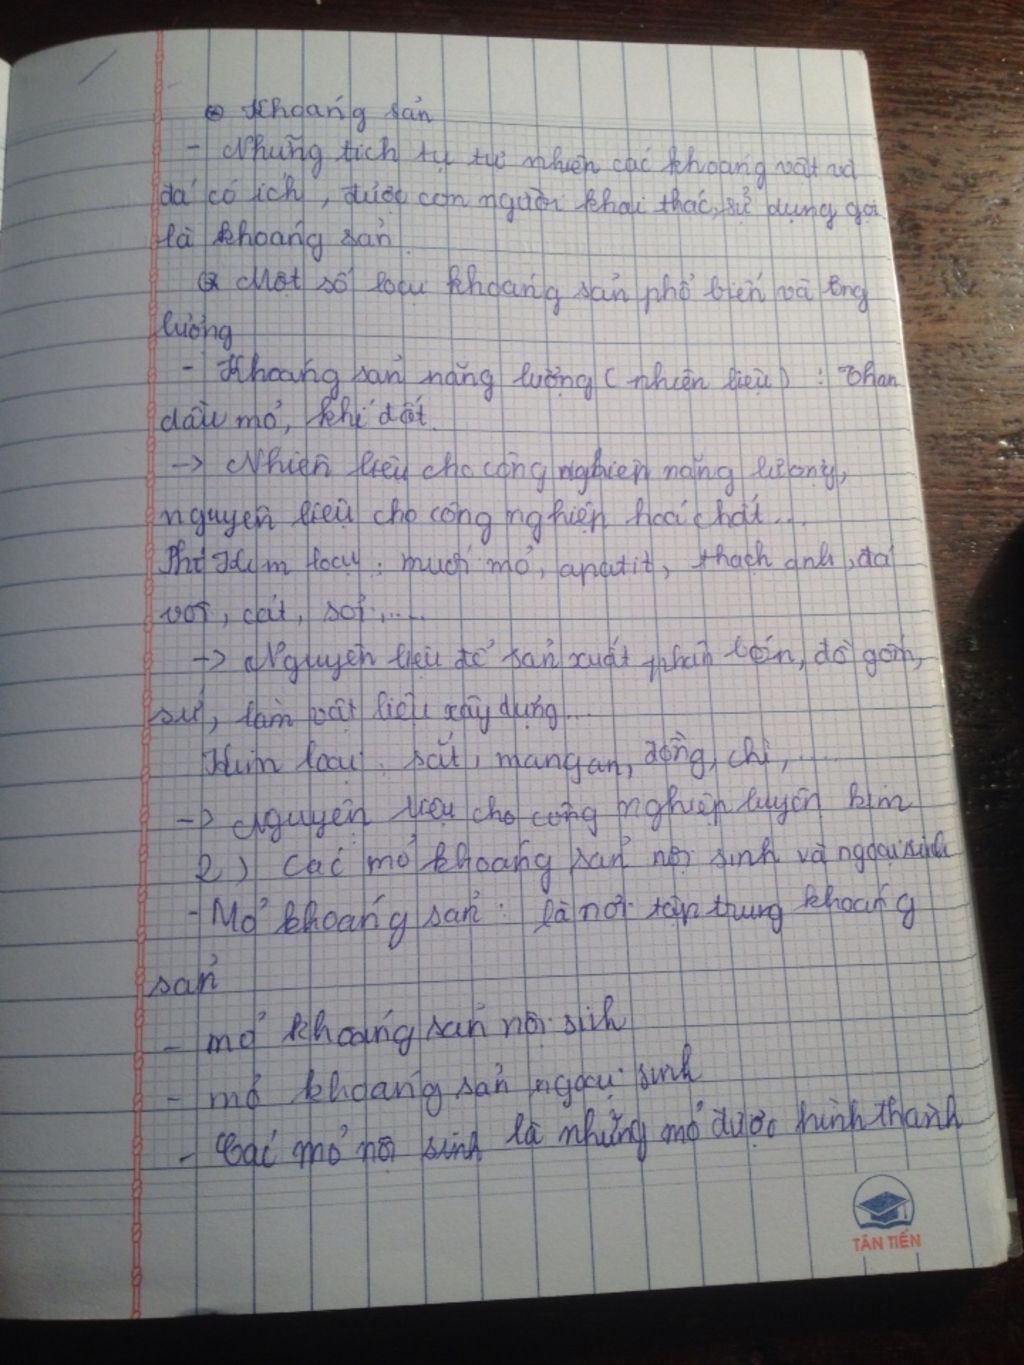 Khoáng sản
- Những tích tụ tự nhiên các khoáng vật và
đá có ích, được con người khai thác, sử dụng gọi
là khoáng sản.
Một số loại khoáng sản phổ biến và
lượng
- Khoáng sản năng lượng (nhiên liệu) : Than
dầu mỏ, khí đốt.
-> Nhiên liệu cho công nghiệp năng lượng,
nguyên liệu cho công nghiệp hoá chất...
Phi Kim loại : muối mỏ, apatit, thạch anh, đá
vôi, cát, sỏi,....
-> Nguyên liệu để sản xuất phân bón, đồ gốm,
sứ, làm vật liệu xây dựng...
Kim loại : sắt, mangan, đồng, chì,....
-> Nguyên liệu cho công nghiệp luyện kim
2) Các mỏ khoáng sản nội sinh và ngoại sinh
- Mỏ khoáng sản : là nơi tập trung khoáng
sản
- mỏ khoáng sản nội sinh
- mỏ khoáng sản ngoại sinh
- Các mỏ nội sinh là những mỏ được hình thành
TÂN TIẾN